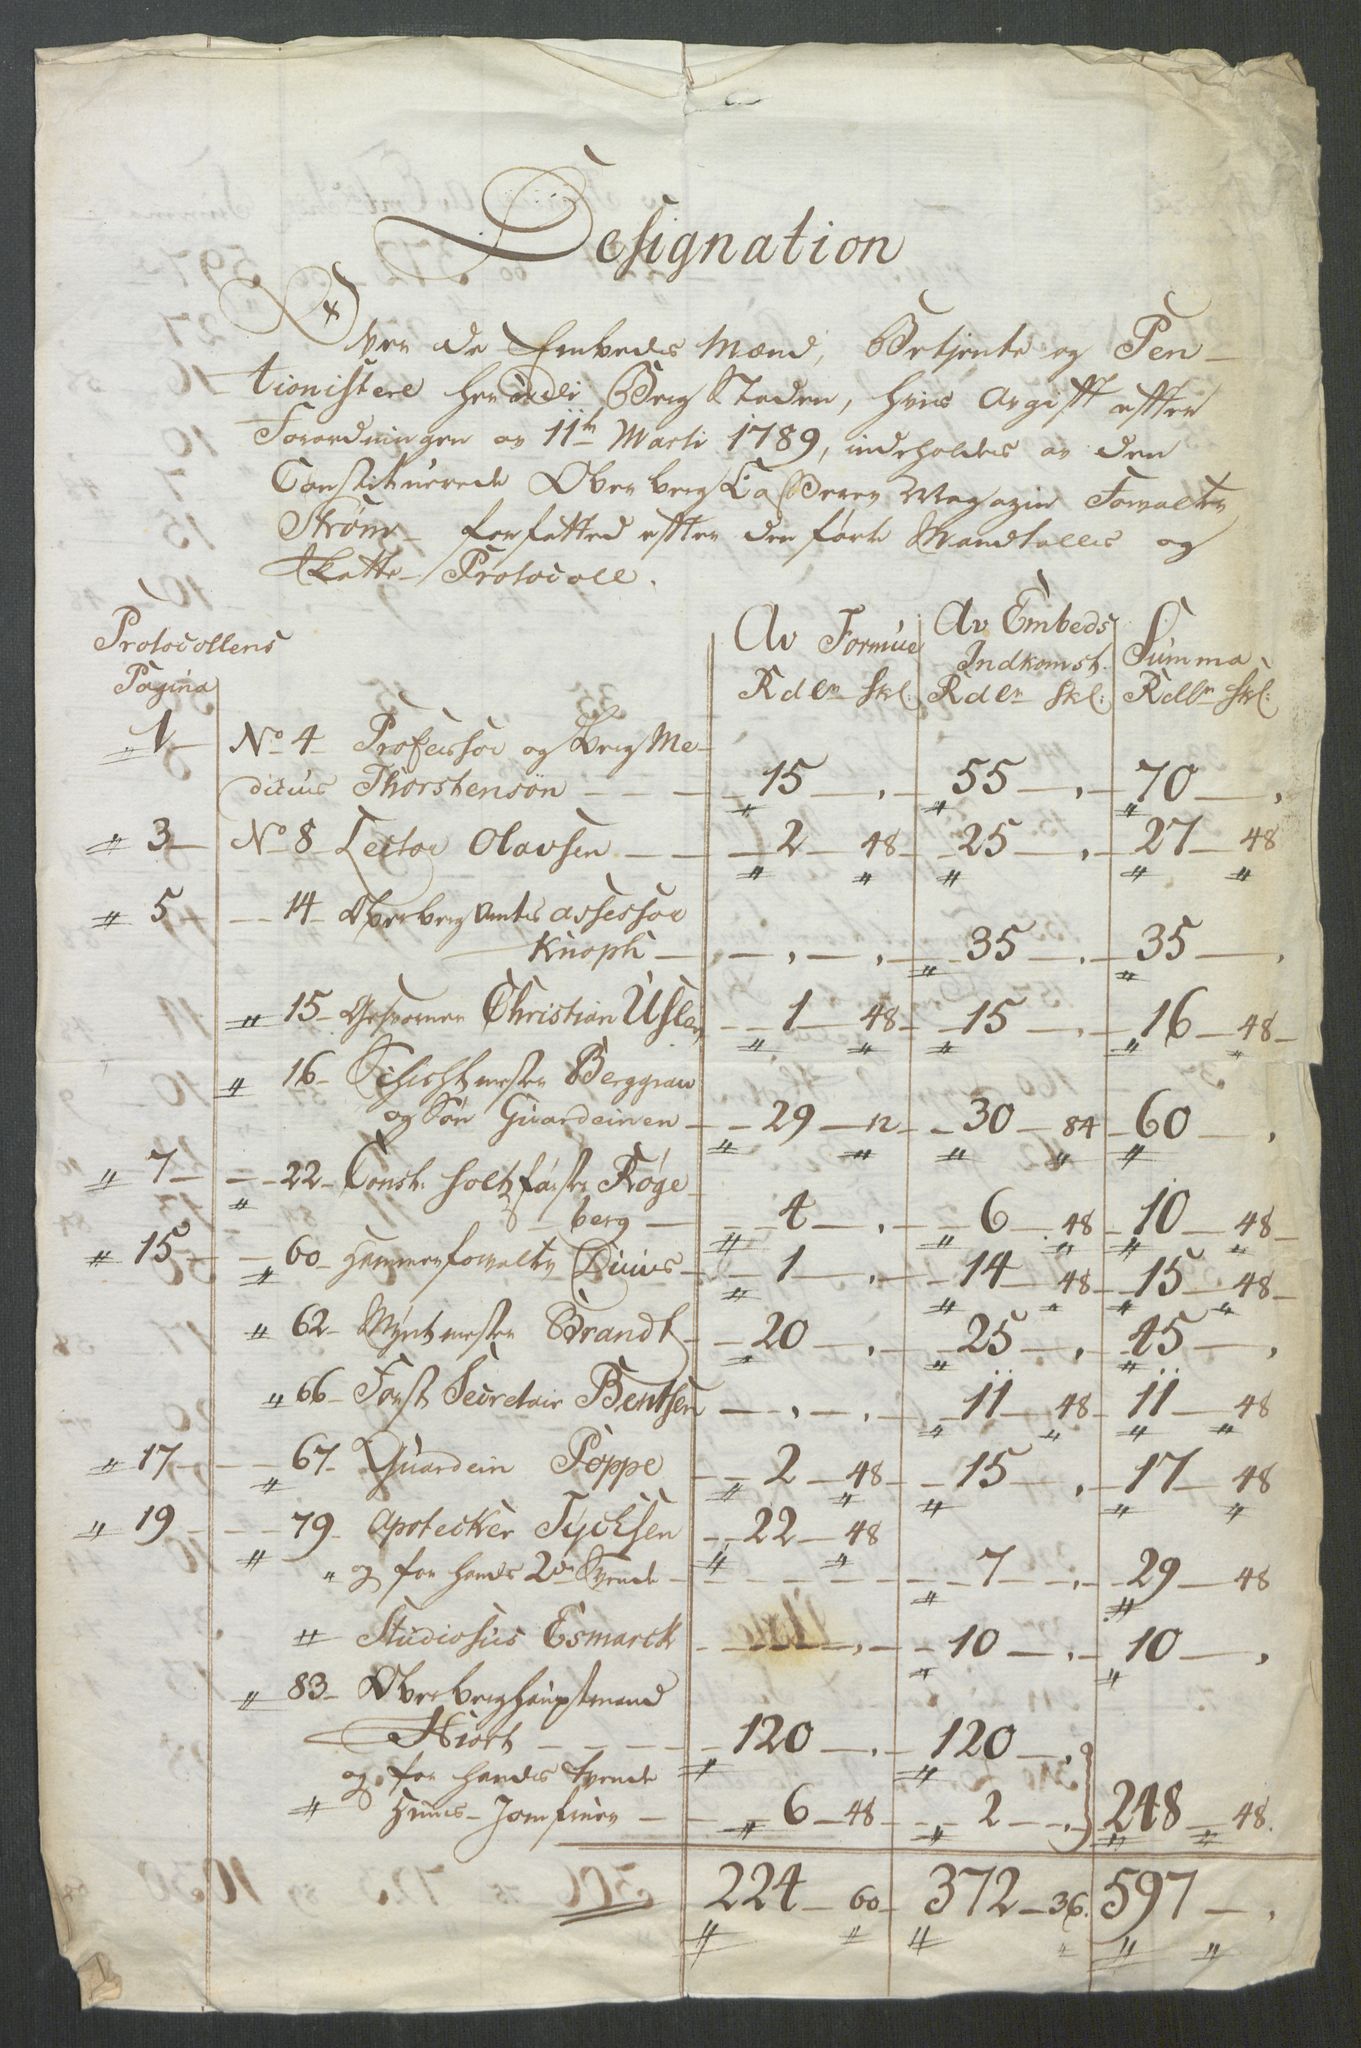 Designation
Over de Embeds Mænd, Betjente og Pen-
tionistere her i Berg Staden, hvis Avgift efter
Forordningen av 11te Marti 1789, indeholdes av den
Constituerede Overberg Casserer Magazin Forvalter
Strøm forfatted efter den førte Mandtalls og
Skatte-Protocoll.
Protocollens Pagina Av Formue Rdlr Skl: Av Embeds Indkomst. Rdlr Skl: Summa Rdlr Skl:
1 No 4 Professor og Berg Me-
dicus Thorstensön 15 , 55 , 70 ,
" 3 No 8 Lector Olavsen 2 48 25 , 27 48
" 5 14 Overberg Amts Assessor
Knoph , , 35 , 35 ,
" 15 Geschworner Christian Usler 1 48 15 , 16 48
" 16 Schichtmester Berggrav
og Søn Guardeinen 29 12 30 84 60 ,
" 7 22 Const. Holtzførster Røge-
berg 4 , 6 48 10 48
" 15 60 Hammerforvalter Ducus 1 , 14 48 15 48
" 62 Myntmester Brandt 20 , 25 , 45 ,
" 66 Forst Secretair Bentsen , , 11 48 11 48
" 17 67 Guardein Poppe 2 48 15 , 17 48
" 19 79 Apotecker Tycksen 22 48
" og for hands 2de Svende 7 , 29 48
" Studiosus Esmarck , 10 , 10 ,
" 83 Overberghauptmand
Hiort 120 , 120 ,
og for handes tvende
" Huus-Jomfruer 6 48 2 , 248 48
224 60 372 36 597 ,